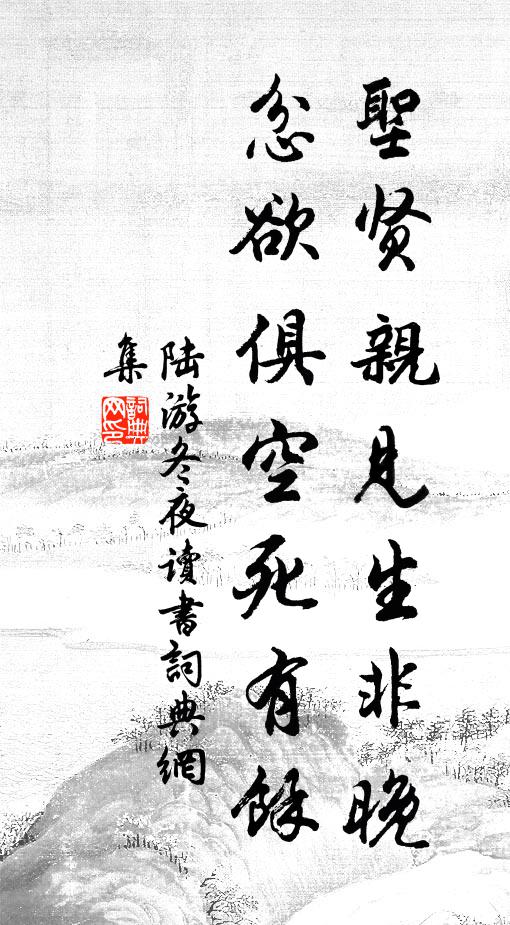 聖贤親見生非晚
忿欲俱空死有餘
陆游冬夜讀書詞典網
集
詞典
网印